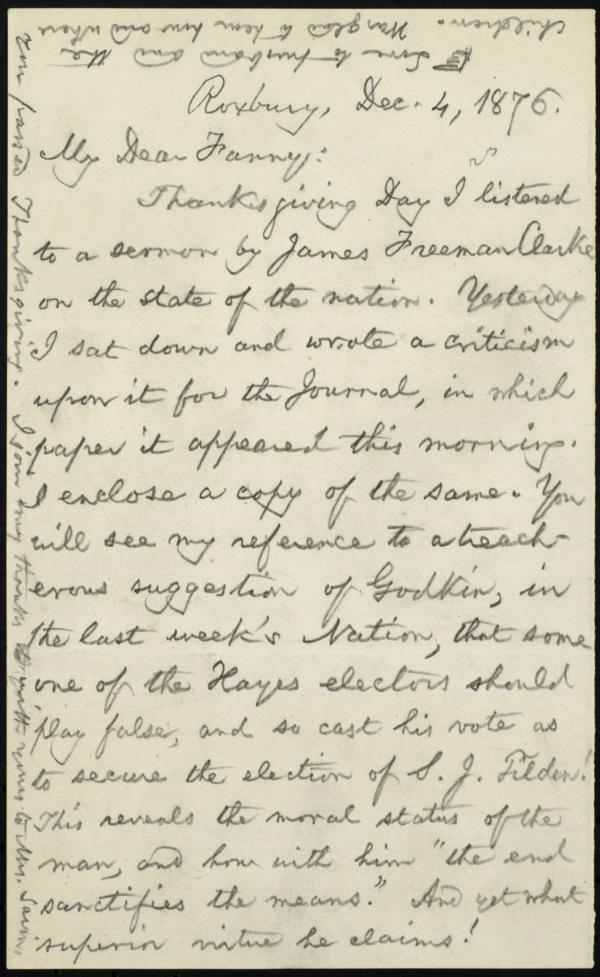 Roxbury, Dec. 4, 1876.
My Dear Fanny:
Thanksgiving Day I listened
to a sermon by James Freeman Clarke
on the state of the nation. Yesterday
I sat down and wrote a criticism
upon it for the Journal, in which
paper it appeared this morning.
I enclose a copy of the same. You
will see my reference to a treach-
erous suggestion of Godkin, in
the last week's Nation, that some
one of the Hayes electors should
play false, and so cast his vote as
to secure the election of S. J. Tilden!
This reveals the moral status of the
man, and how with him "the end
sanctifies the means." And yet what
superior virtue he claims!
Love to husband and the
children. Was glad to hear how and where
you passed Thanksgiving. I join my thanks with yours to Mrs.